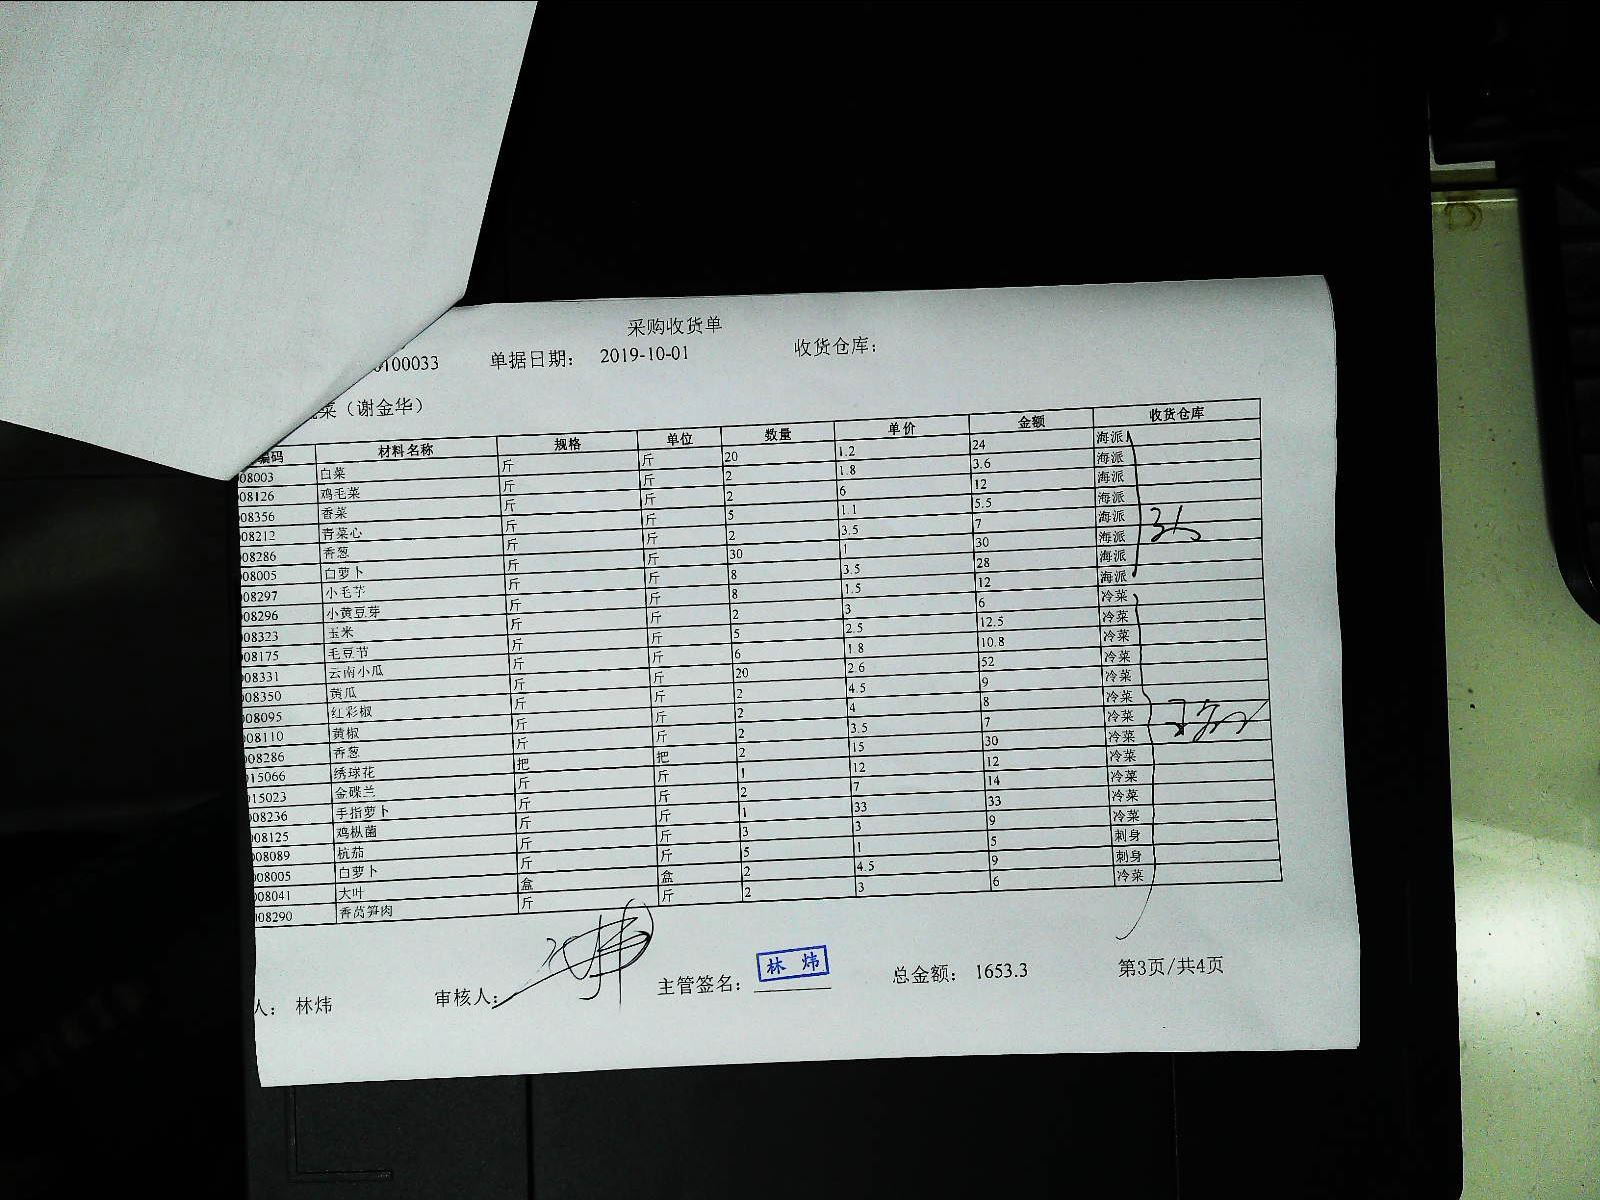 采购收货单
0100033 单据日期： 2019-10-01 收货仓库：
菜（谢金华）
编码 材料名称 规格 单位 数量 单价 金额 收货仓库
08003 白菜 斤 斤 20 1.2 24 海派
08126 鸡毛菜 斤 斤 2 1.8 3.6 海派
08356 香菜 斤 斤 2 6 12 海派
08212 青菜心 斤 斤 5 1.1 5.5 海派
08286 香葱 斤 斤 2 3.5 7 海派
08005 白萝卜 斤 斤 30 1 30 海派
08297 小毛芋 斤 斤 8 3.5 28 海派
08296 小黄豆芽 斤 斤 8 1.5 12 海派
08323 玉米 斤 斤 2 3 6 冷菜
08175 毛豆节 斤 斤 5 2.5 12.5 冷菜
08331 云南小瓜 斤 斤 6 1.8 10.8 冷菜
08350 黄瓜 斤 斤 20 2.6 52 冷菜
08095 红彩椒 斤 斤 2 4.5 9 冷菜
08110 黄椒 斤 斤 2 4 8 冷菜
08286 香葱 斤 斤 2 3.5 7 冷菜
15066 绣球花 把 把 2 15 30 冷菜
15023 金碟兰 斤 斤 1 12 12 冷菜
08236 手指萝卜 斤 斤 2 7 14 冷菜
08125 鸡枞菌 斤 斤 1 33 33 冷菜
08089 杭茄 斤 斤 3 3 9 冷菜
08005 白萝卜 斤 斤 5 1 5 刺身
08041 大叶 盒 盒 2 4.5 9 刺身
08290 香莴笋肉 斤 斤 2 3 6 冷菜
人： 林炜 审核人： 主管签名： 林炜 总金额： 1653.3 第3页/共4页